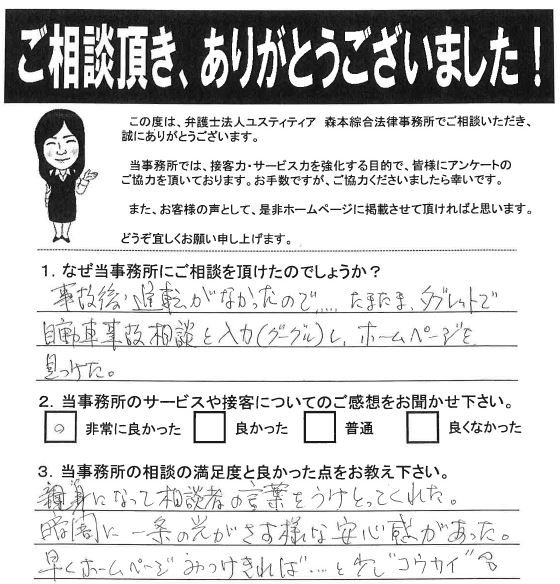 ご相談頂き、ありがとうございました！
この度は、弁護士法人ユスティティア 森本綜合法律事務所でご相談いただき、
誠にありがとうございます。
当事務所では、接客力・サービス力を強化する目的で、皆様にアンケートの
ご協力を頂いております。お手数ですが、ご協力くださいましたら幸いです。
また、お客様の声として、是非ホームページに掲載させて頂ければと思います。
どうぞ宜しくお願い申し上げます。
1．なぜ当事務所にご相談を頂けたのでしょうか？
事故後、進転がなかったので…… たまたま、タブレットで
自動車事故相談と入力(グーグル)し、ホームページを
見つけた。
2．当事務所のサービスや接客についてのご感想をお聞かせ下さい。
非常に良かった 良かった 普通 良くなかった
3．当事務所の相談の満足度と良かった点をお教え下さい。
親身になって相談者の言葉をうけとってくれた。
暗闇に一条の光がさす様な安心感があった。
早くホームページみつけきれば…と "コウカイ"